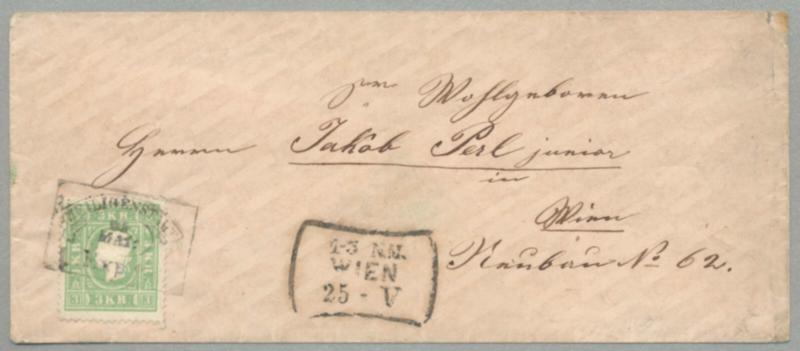 Sr Wohlgeboren
Herrn Jakob Perl junior
in
Wien
Neubau No 62.
HEILIGENSTADT
MAI
3 KR
3 KR
1-3 N.M.
WIEN
25 - V